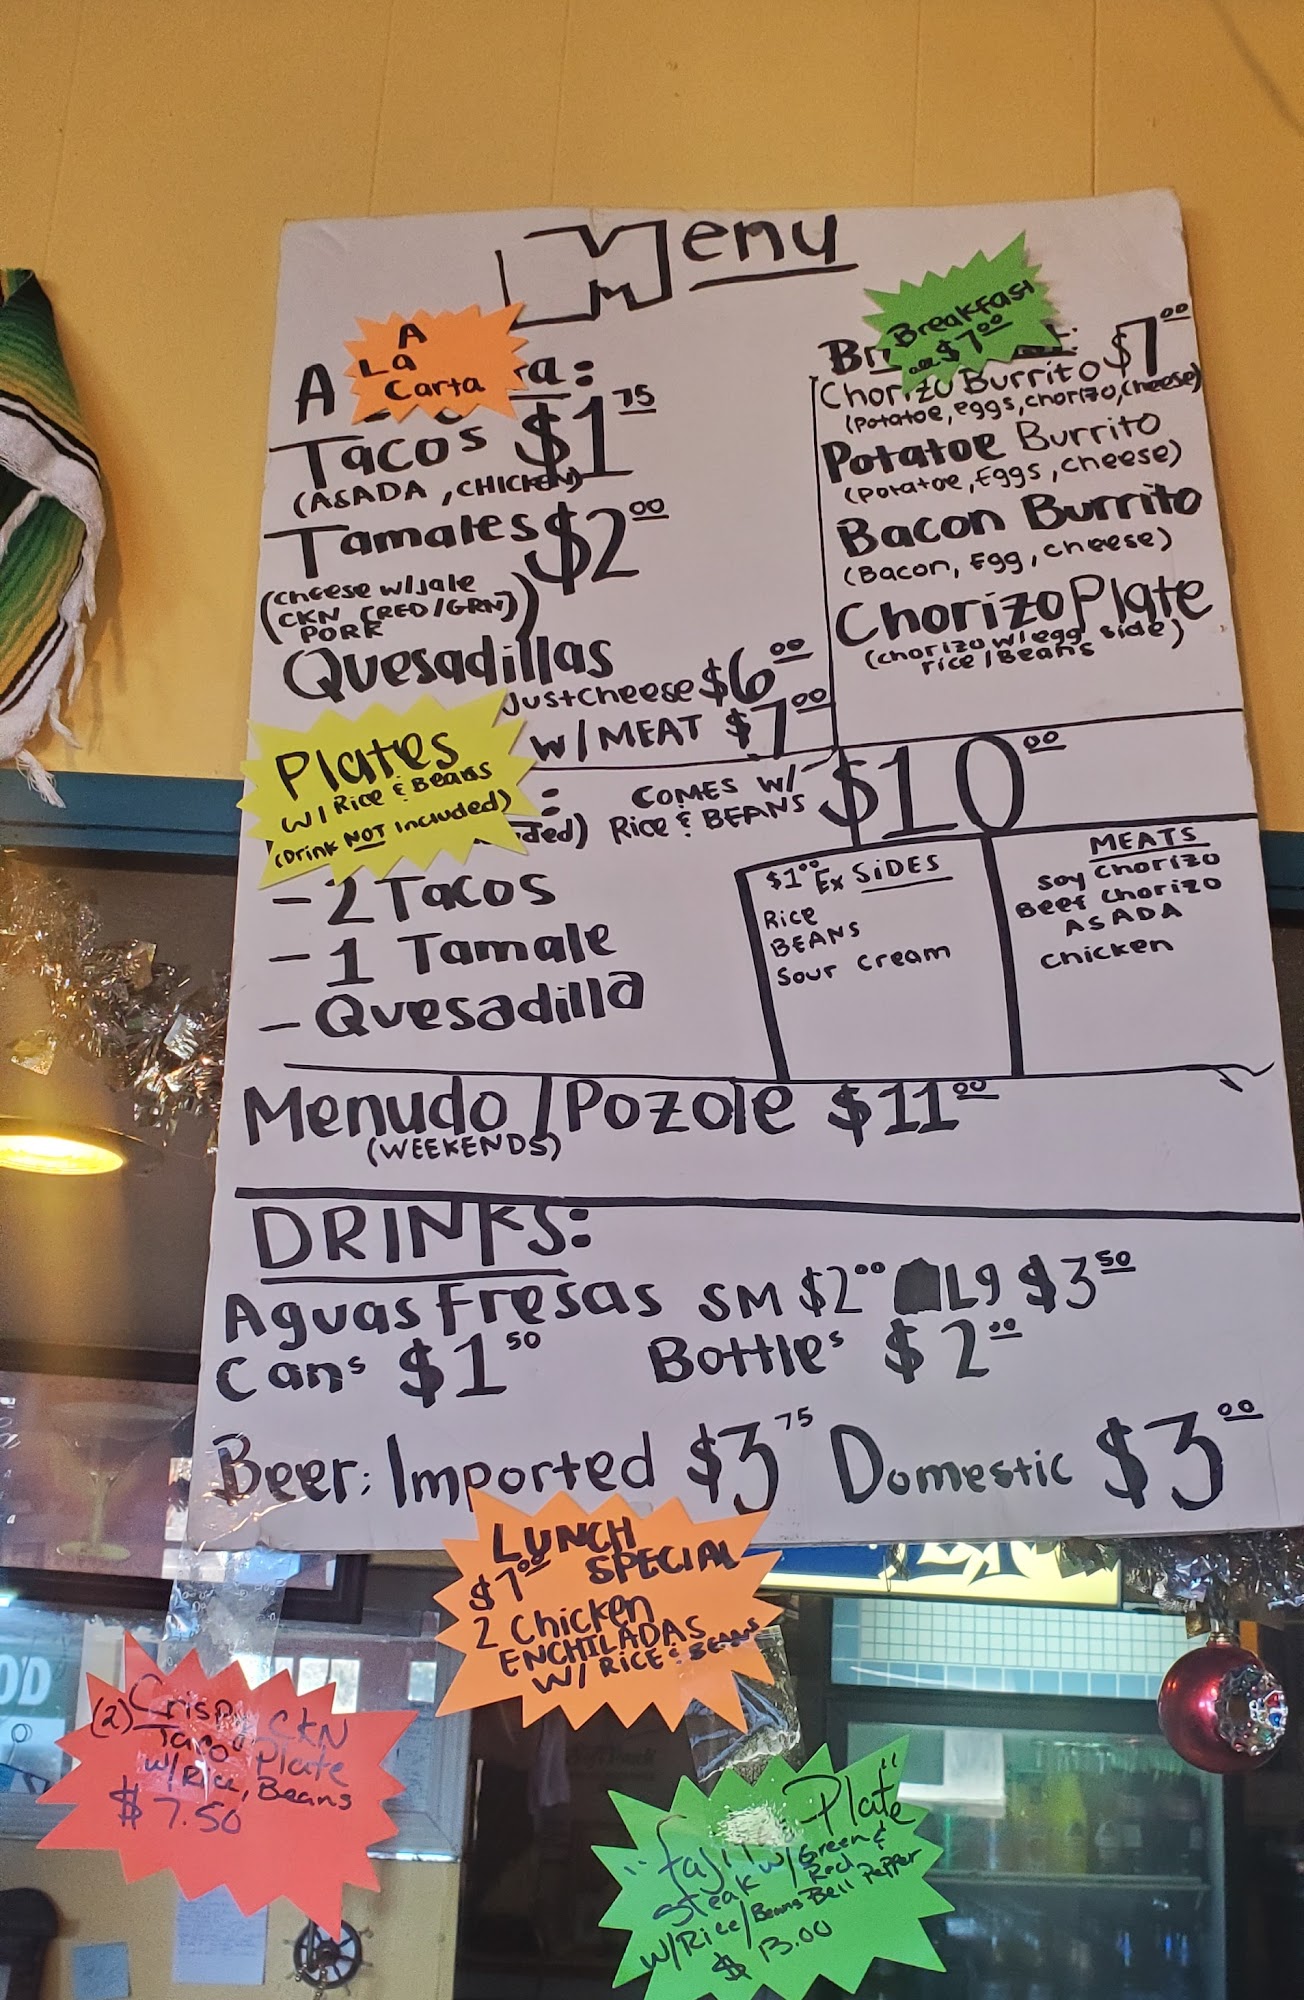 Menu
A
La
Carta
A ta:
Tacos $1.75
(ASADA, CHICKEN)
Tamales $2.00
(cheese w/Jale
CKN [RED/GRN])
PORK
Quesadillas
Just cheese $6.00
w/ MEAT $7.00
Breakfast
all $7.00
Br t: $7.00
Chorizo Burrito
(Potatoe, eggs, chorizo, cheese)
Potatoe Burrito
(Potatoe, Eggs, cheese)
Bacon Burrito
(Bacon, Egg, cheese)
Chorizo Plate
(chorizo w/egg side)
rice/Beans
Plates
w/ Rice & Beans
(Drink NOT included)
: COMES W/ $10.00
ded) Rice & BEANS
- 2 Tacos
- 1 Tamale
- Quesadilla
$1.00 Ex SiDES
Rice
BEANS
Sour cream
MEATS
Soy Chorizo
Beef chorizo
ASADA
chicken
Menudo / Pozole $11.00
(WEEKENDS)
DRINKS:
Aguas Frescas SM $2.00 Lg $3.50
Cans $1.50 Bottles $2.00
Beer: Imported $3.75 Domestic $3.00
LUNCH
SPECIAL
$7.00
2 Chicken
ENCHILADAS
W/ RICE & BEANS
(2) Crispy CKN
Taco Plate
w/Rice, Beans
$7.50
"Fajita Plate"
Steak w/Green &
Red
Bell Pepper
w/Rice/Beans
$13.00